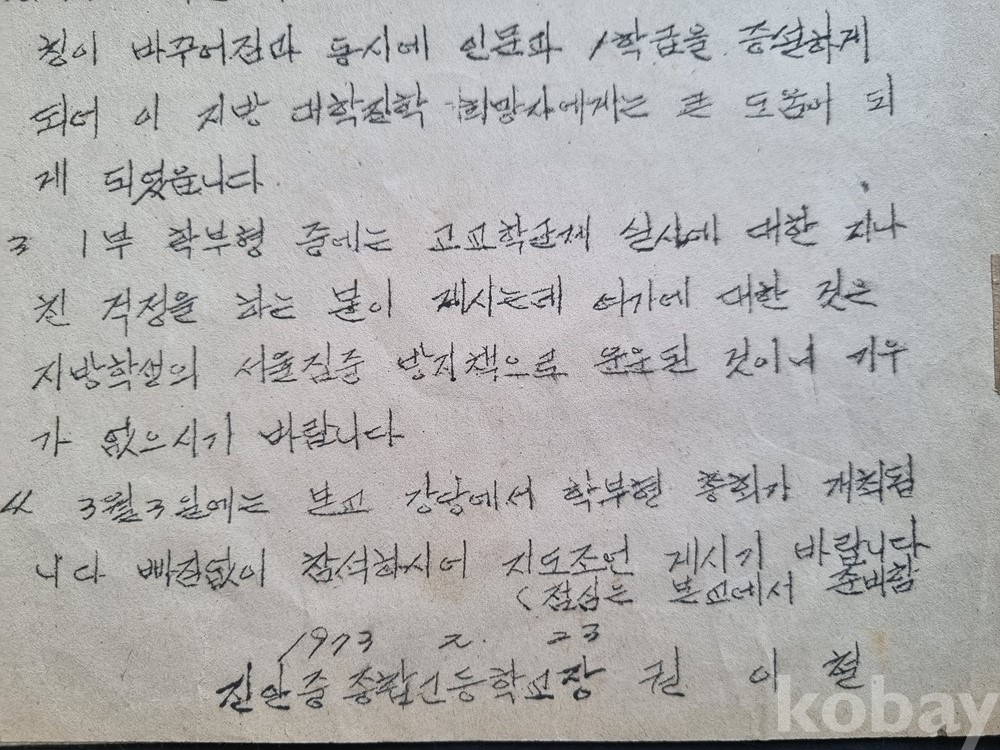 칭이 바꾸어짐과 동시에 인문과 1학급을 증설하게
되어 이 지방 대학진학 희망자에게는 큰 도움이 되
게 되었읍니다
3 1부 학부형 중에는 고교학군제 실시에 대한 지나
친 걱정을 하는 분이 계시는데 여기에 대한 것은
지방학생의 서울집중 방지책으로 운운된 것이니 기우
가 없으시기 바랍니다
4 3월 3일에는 본교 강당에서 학부현 총회가 개최됩
니다 빠짐없이 참석하시어 지도조언 계시기 바랍니다
(점심은 본교에서 준비함
1973 2. 23
진안중 종합고등학교장 권 이 철
kobay